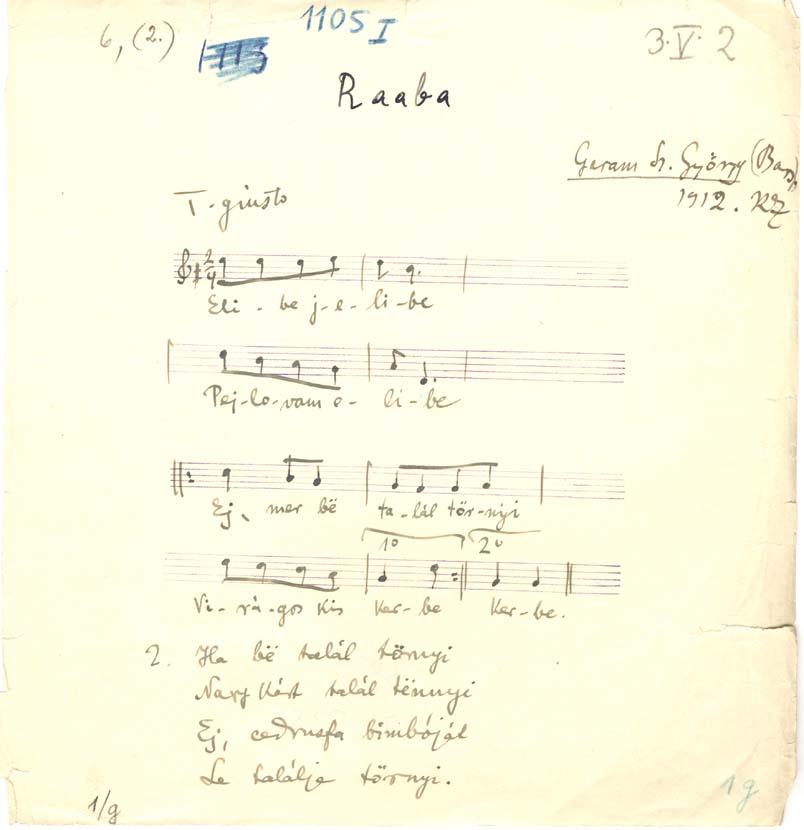 6, (2.)
1105 I
1113
3.V.2
Raaba
Garam Sz. György (Bars)
1912. KZ
T. giusto
2/4
Eli - be j-e-li-be
Pej-lo-vam e- li-be
Ej, mer bë ta-lál tör-nyi
1º 2º
Vi-rá-gos kis ker-be ker-be.
2. Ha bë talál törnyi
Nagy kárt talál tënnyi
Ej, cedrusfa bimbóját
Le találja törnyi.
1/g
1g